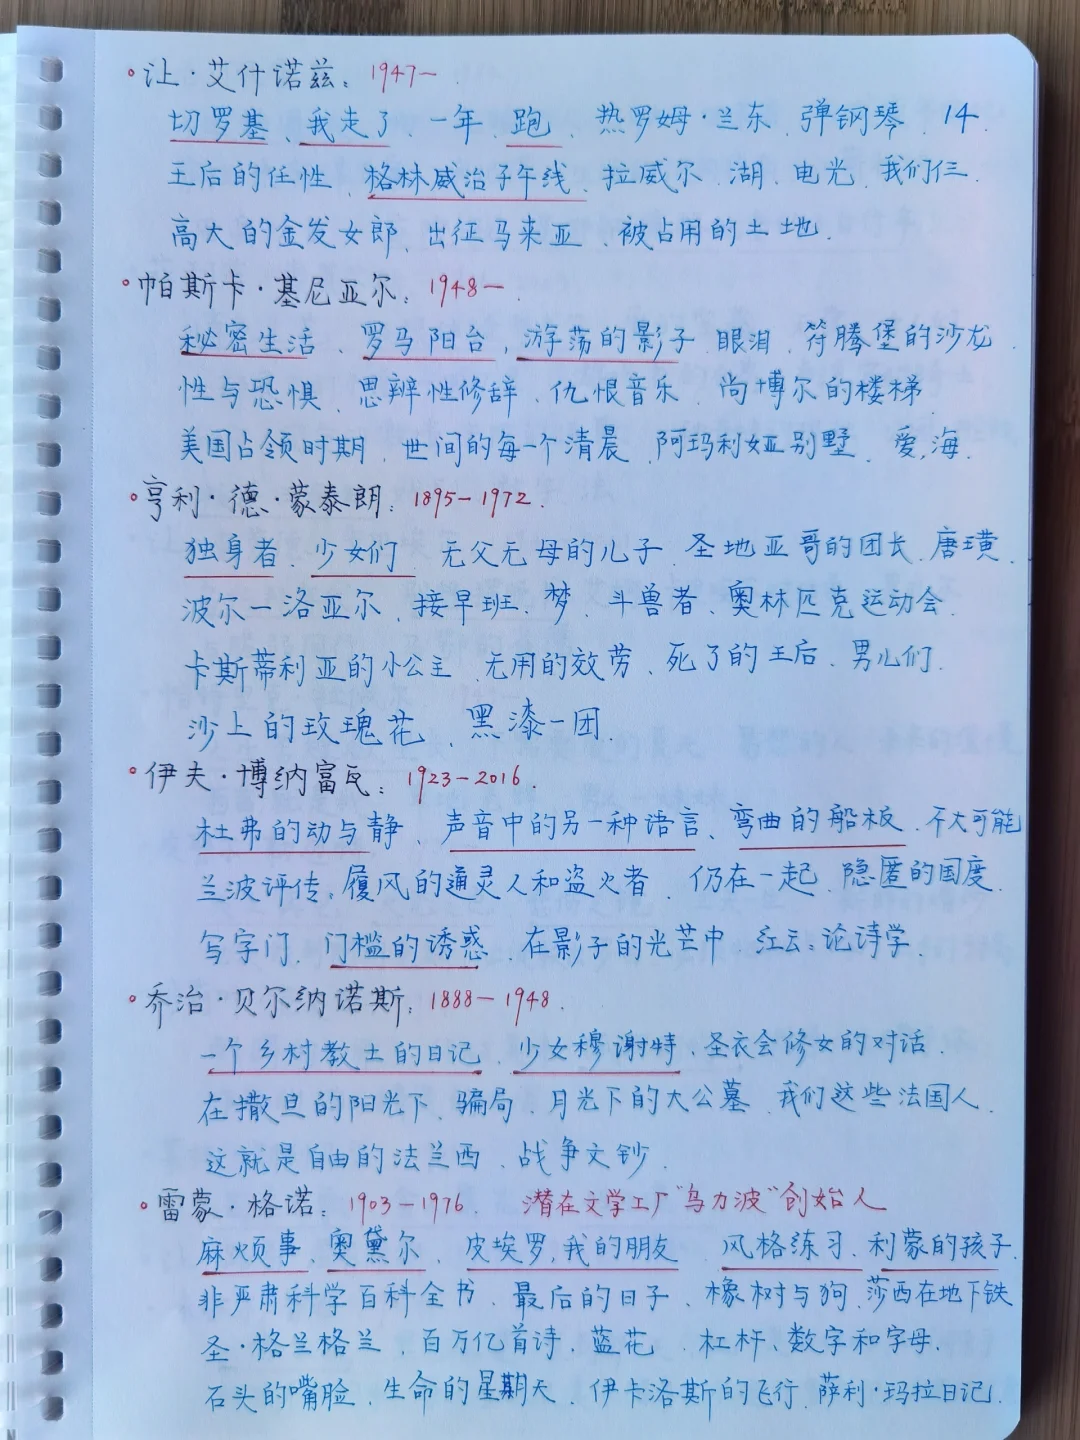 让·艾什诺兹：1947—.
切罗基、我走了、一年、跑、热罗姆·兰东、弹钢琴、14.
王后的任性、格林威治子午线、拉威尔、湖、电光、我们仨.
高大的金发女郎、出征马来亚、被占用的土地.
帕斯卡·基尼亚尔：1948—.
秘密生活、罗马阳台、游荡的影子、眼泪、符腾堡的沙龙.
性与恐惧、思辨性修辞、仇恨音乐、尚博尔的楼梯.
美国占领时期、世间的每一个清晨、阿玛利娅别墅、爱,海.
亨利·德·蒙泰朗：1895—1972.
独身者、少女们、无父无母的儿子、圣地亚哥的团长、唐璜.
波尔—洛亚尔、接早班、梦、斗兽者、奥林匹克运动会.
卡斯蒂利亚的小公主、无用的效劳、死了的王后、男儿们.
沙上的玫瑰花、黑漆一团.
伊夫·博纳富瓦：1923—2016.
杜弗的动与静、声音中的另一种语言、弯曲的船板、不大可能
兰波评传：履风的通灵人和盗火者、仍在一起、隐匿的国度.
写字门、门槛的诱惑、在影子的光芒中、红云：论诗学.
乔治·贝尔纳诺斯：1888—1948.
一个乡村教士的日记、少女穆谢特、圣衣会修女的对话.
在撒旦的阳光下、骗局、月光下的大公墓、我们这些法国人.
这就是自由的法兰西、战争文钞.
雷蒙·格诺：1903—1976. 潜在文学工厂"乌力波"创始人
麻烦事、奥黛尔、皮埃罗,我的朋友、风格练习、利蒙的孩子.
非严肃科学百科全书、最后的日子、橡树与狗、莎西在地下铁
圣·格兰格兰、百万亿首诗、蓝花、杠杆、数字和字母.
石头的嘴脸、生命的星期天、伊卡洛斯的飞行、萨利·玛拉日记.